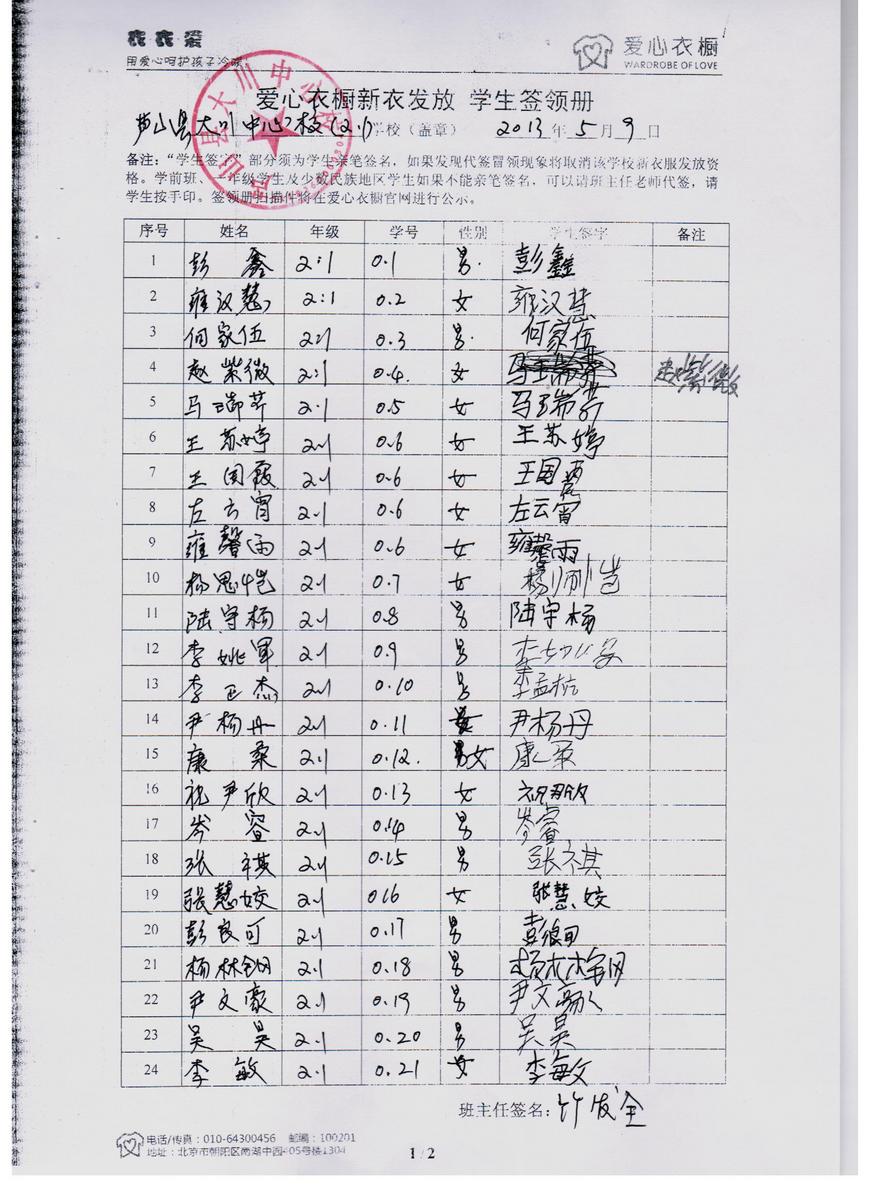 衣衣爱
用爱心呵护孩子冷暖
爱心衣橱
WARDROBE OF LOVE
爱心衣橱新衣发放 学生签领册
芦山县大川中心校(2.1)学校（盖章） 2013年5月9日
备注：“学生签字”部分须为学生亲笔签名，如果发现代签冒领现象将取消该学校新衣服发放资
格。学前班、一年级学生及少数民族地区学生如果不能亲笔签名，可以请班主任老师代签，请
学生按手印。签领册扫描件将在爱心衣橱官网进行公示。
序号 姓名 年级 学号 性别 学生签字 备注
1 彭鑫 2:1 0.1 男. 彭鑫
2 雍汉慧 2:1 0.2 女 雍汉慧
3 何家伍 2:1 0.3 男. 何家伍
4 赵紫微 2:1 0.4. 女 赵紫薇
5 马瑞芹 2.1 0.5 女 马瑞芹
6 王苏婷 2.1 0.6 女 王苏婷
7 王国霞 2.1 0.6 女 王国霞
8 左云宵 2.1 0.6 女 左云宵
9 雍馨雨 2.1 0.6 女 雍馨雨
10 杨思恺 2.1 0.7 女 杨
11 陆守杨 2.1 0.8 男 陆守杨
12 李姚军 2.1 0.9 男 李
13 李正杰 2.1 0.10 男 李孟杭
14 尹杨丹 2.1 0.11 女 尹杨丹
15 康桑 2.1 0.12. 女 康
16 祝尹欣 2.1 0.13 女 祝尹欣
17 岑睿 2.1 0.14 男 岑睿
18 张祺 2.1 0.15 男 张祺
19 张慧姣 2.1 016 女 张慧姣
20 彭良可 2.1 0.17 男 彭
21 杨林钢 2.1 0.18 男 杨林
22 尹文豪 2.1 0.19 男 尹文豪
23 吴昊 2.1 0.20 男 吴昊
24 李敏 2.1 0.21 女 李敏
班主任签名: 竹发全
电话/传真：010-64300456 邮编：100201
地址：北京市朝阳区南湖中园405号楼1304
1 / 2